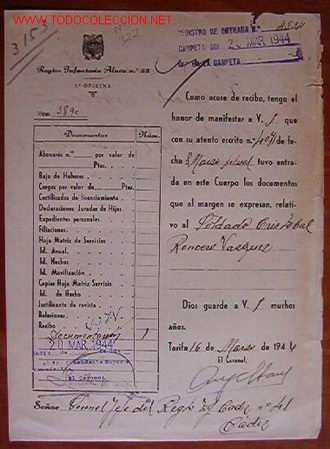 www.TODOCOLECCION.NET
3153
REGISTRO DE ENTRADA N.º 4524
CARPETA DIA 20 MAR 1944
DE LA CARPETA
Regto Infantería Alava n.º 22
1.ª OFICINA
Núm. 3890
Documentos Núm.
Abonarés n.º por valor de
Ptas.
Baja de Haberes
Cargos por valor de Ptas.
Certificados de licenciamiento
Declaraciones Juradas de Hijos.
Expedientes personales
Filiaciones
Hoja Matriz de Servicios
Id. Anual.
Id. Hechos
Id. Movilización
Copias Hoja Matriz Servicio
Id. de Hecho
Justificante de revista
Relaciones.
Recibo
Documentación 1
20 MAR 1944
Como acuse de recibo, tengo el
honor de manifestar a V. S
que con su atento escrito n.º de fe-
cha 8 Marzo actual tuvo entra-
da en este Cuerpo los documentos
que al margen se expresan, relati-
vo al Soldado Cristobal
Roncero Vazquez
Dios guarde a V. S muchos
años.
Tarifa 16 de Marzo de 1944
El Coronel,
Señor Coronel Jefe del Regto Inf Cadiz nº 41
Cadiz